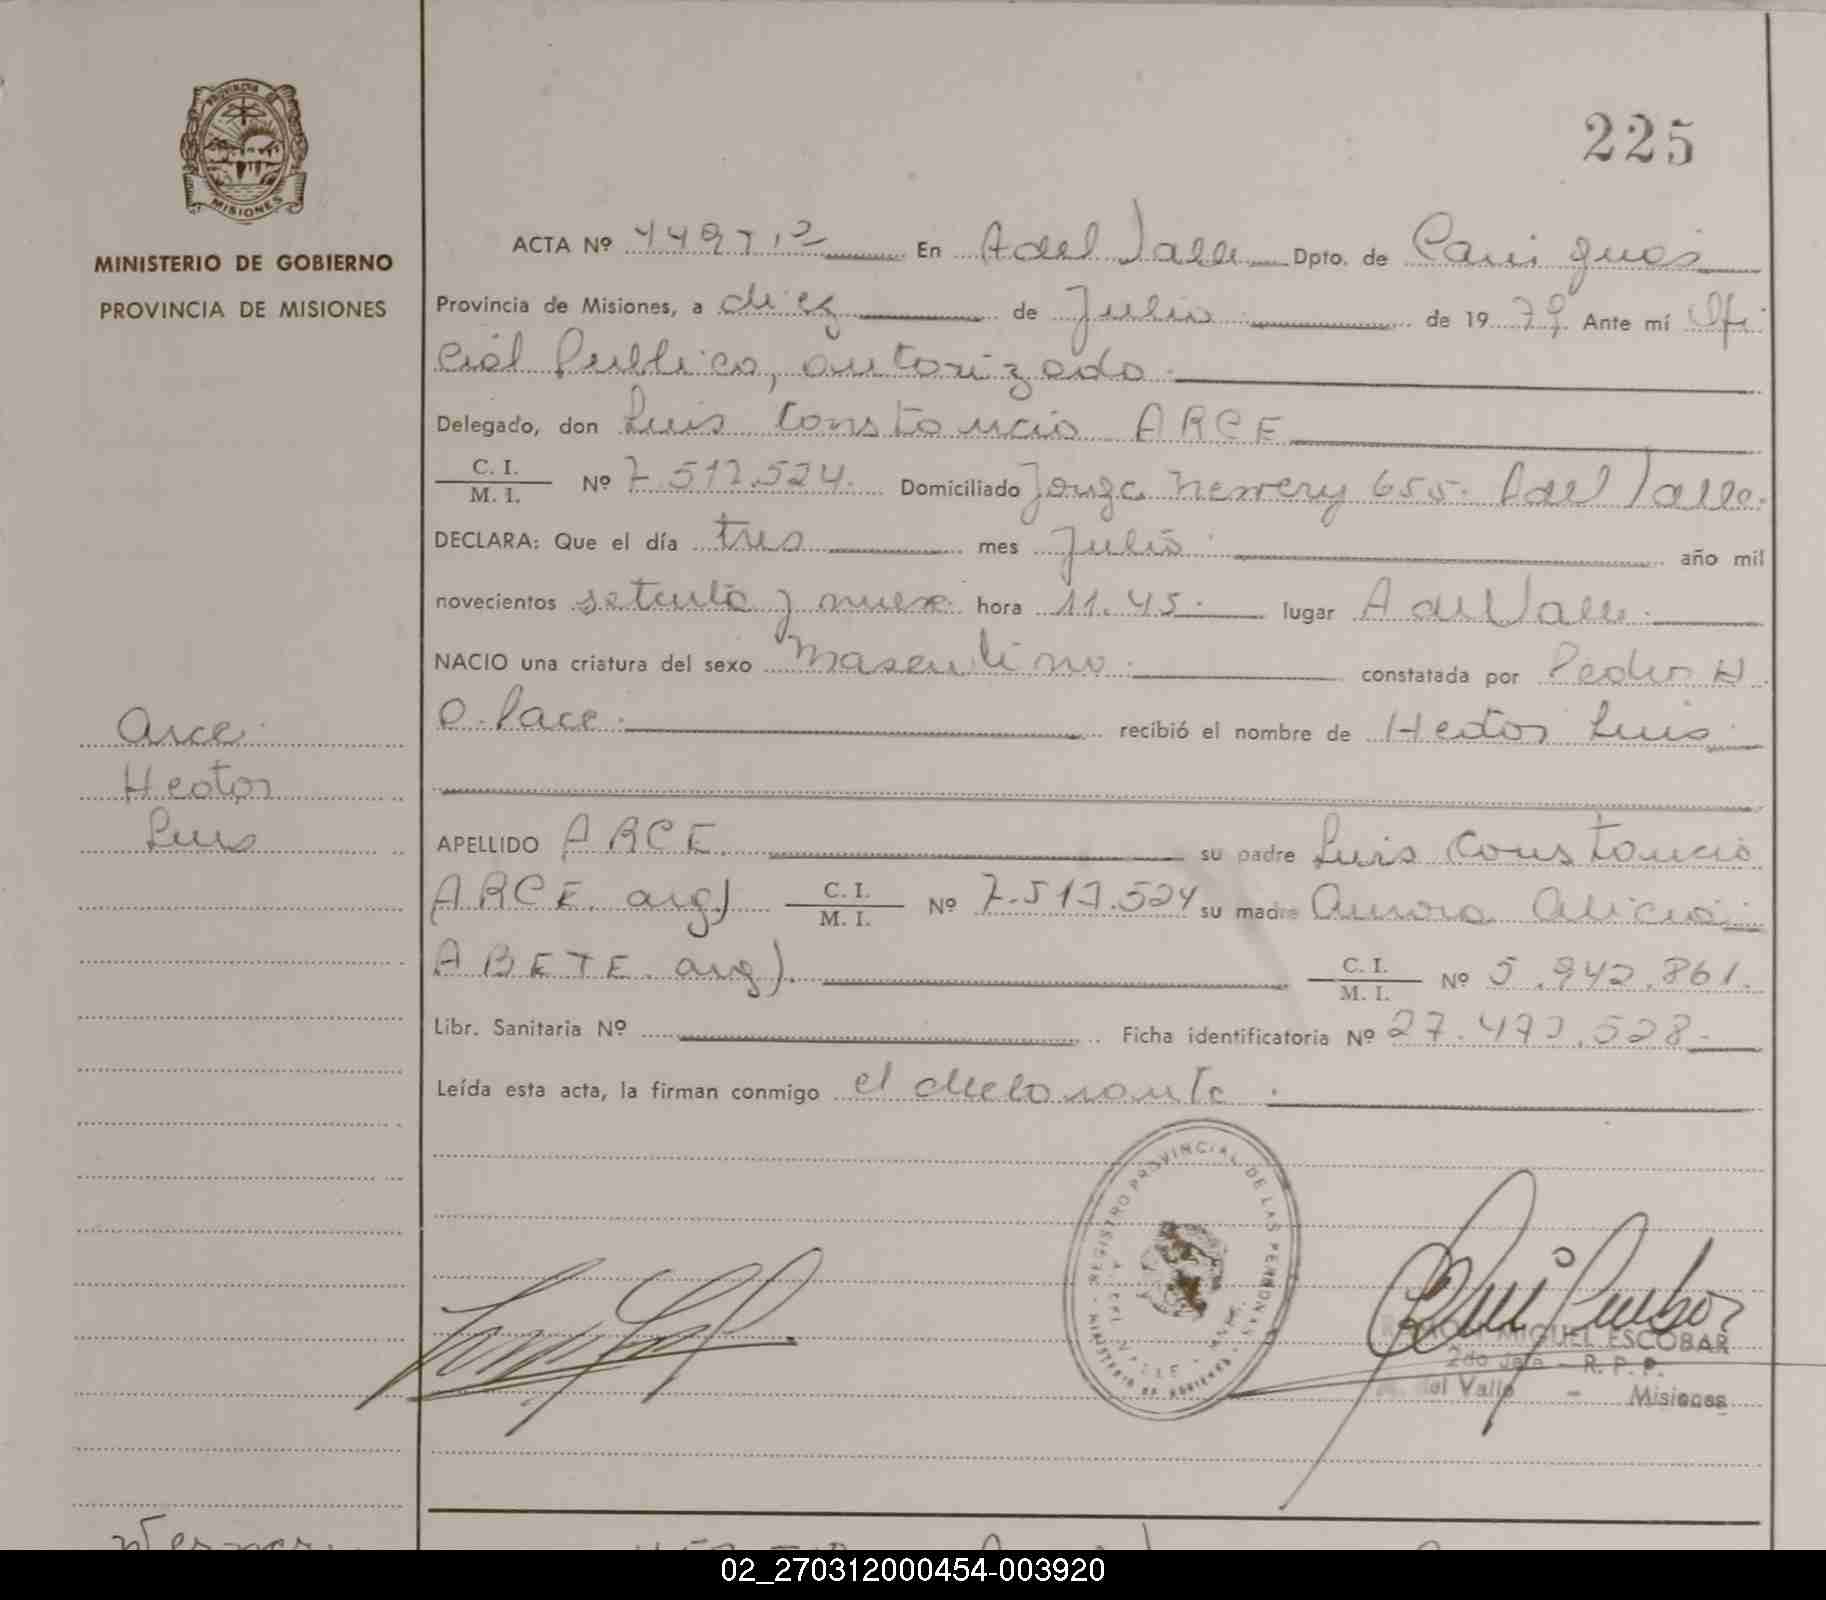 PROVINCIA DE
MISIONES
MINISTERIO DE GOBIERNO
PROVINCIA DE MISIONES
Arce
Hector
Luis
225
ACTA Nº 449 T.2 En A del Valle Dpto. de Cainguas
Provincia de Misiones, a diez de Julio de 1979 Ante mí Ofi
cial Publico, autorizado
Delegado, don Luis Constancio ARCE
C. I.
M. I. Nº 7.517.524. Domiciliado Jorge Newery 655. A del Valle.
DECLARA: Que el día tres mes Julio año mil
novecientos setenta y nueve hora 11.45. lugar A del Valle.
NACIO una criatura del sexo Masculino. constatada por Pedro H
O. Pace. recibió el nombre de Hector Luis
APELLIDO ARCE su padre Luis Constancio
ARCE. arg) C. I. M. I. Nº 7.517.524 su madre Aurora Alicia
ABETE. arg). C. I. M. I. Nº 5.942.861.
Libr. Sanitaria Nº Ficha identificatoria Nº 27.473.528-
Leída esta acta, la firman conmigo el declarante.
REGISTRO PROVINCIAL DE LAS PERSONAS
MINISTERIO DE GOBIERNO
A. DEL VALLE - MNES.
RAMON MIGUEL ESCOBAR
2do Jefe - R. P. P.
A. del Valle - Misiones
02_270312000454-003920